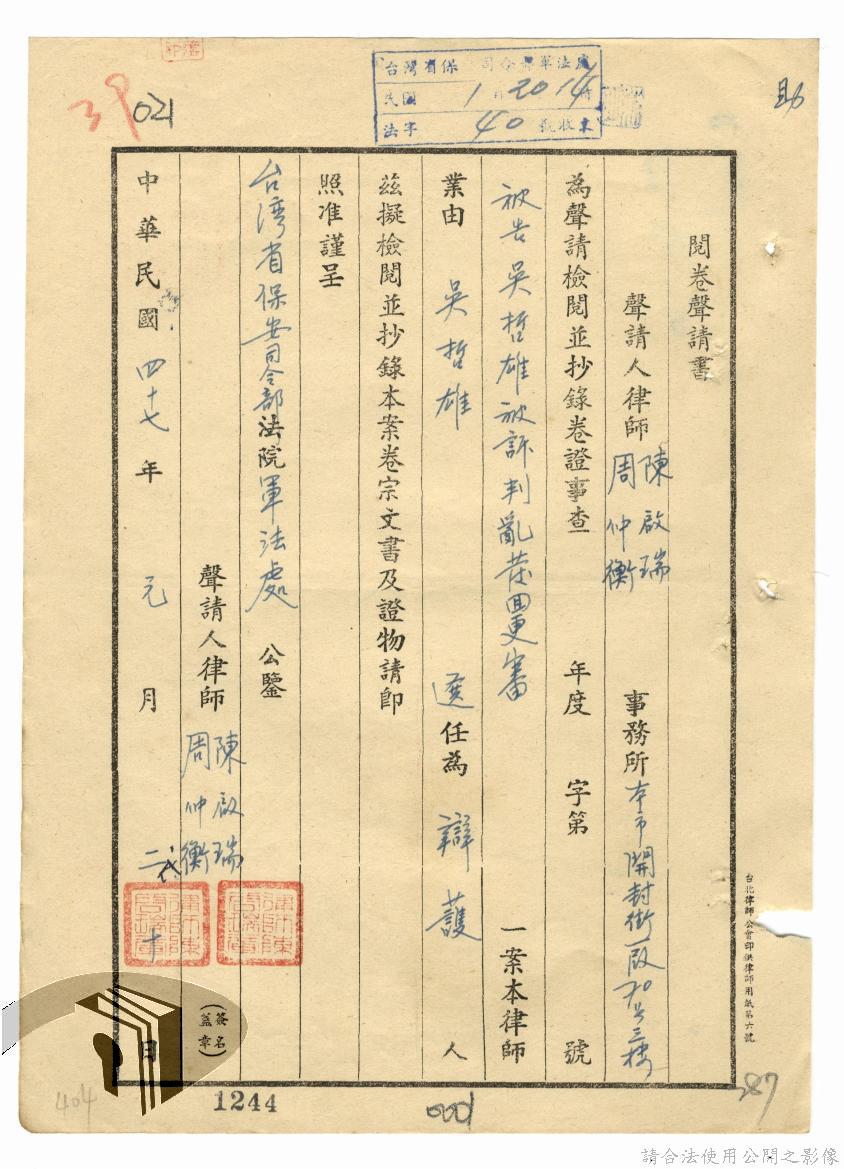 台灣省保 司令部軍法處
民國 1月20 14時
法字 40 號收東
助
39
021
閱卷聲請書
聲請人律師 陳啟瑞 周仲衡 事務所 本市開封街一段70号三樓
為聲請檢閱並抄錄卷證事查 年度 字第 號
被告吳哲雄被訴判亂 更審 一案本律師
業由 吳哲雄 選任為 辯護 人
茲擬檢閱並抄錄本案卷宗文書及證物請卽
照准謹呈
台湾省保安司令部法院軍法處 公鑒
聲請人律師 陳啟瑞 周仲衡 (簽名蓋章)
中華民國 四十七 年 元 月 二十 日
台北律師公會印供律師用紙第六號
404
1244
0001
287
請合法使用公開之影像